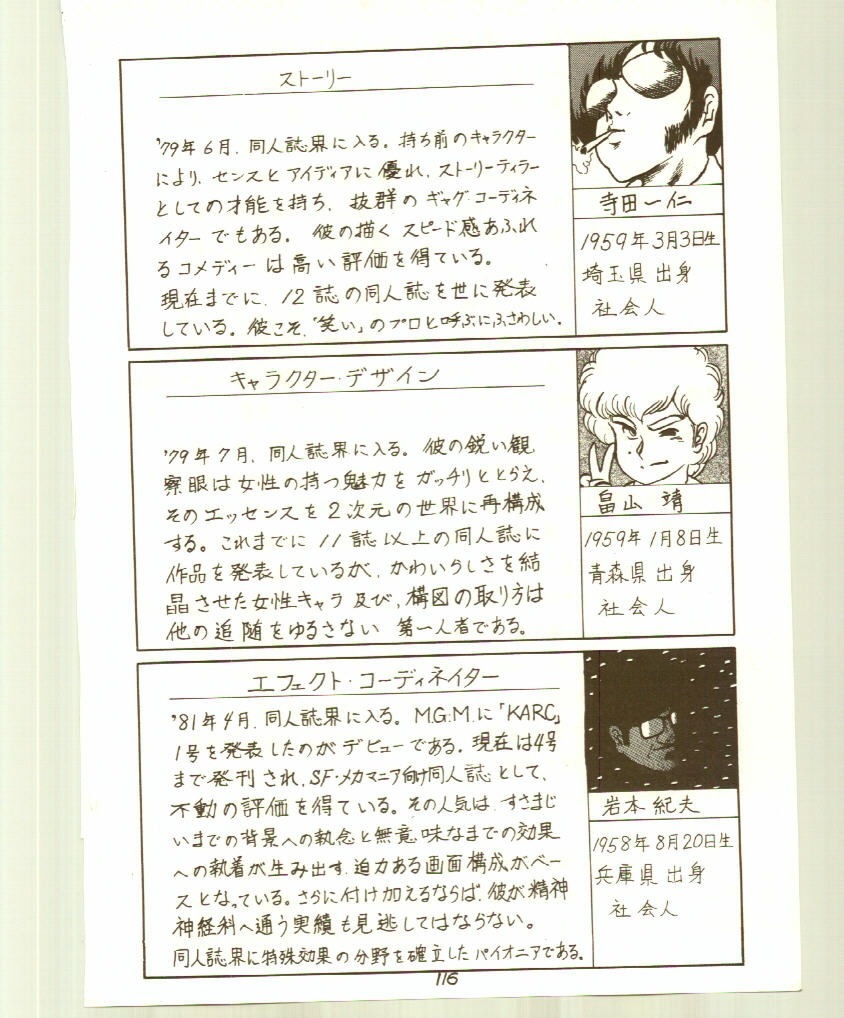 ストーリー
'79年6月、同人誌界に入る。持ち前のキャラクター
により、センスとアイディアに優れ、ストーリーティラー
としての才能を持ち、抜群のギャグ・コーディネ
イターでもある。彼の描くスピード感あふれ
るコメディーは高い評価を得ている。
現在までに、12誌の同人誌を世に発表
している。彼こそ、「笑い」のプロと呼ぶにふさわしい。
寺田一仁
1959年3月3日生
埼玉県出身
社会人
キャラクター・デザイン
'79年7月、同人誌界に入る。彼の鋭い観
察眼は女性の持つ魅力をガッチリととらえ、
そのエッセンスを2次元の世界に再構成
する。これまでに11誌以上の同人誌に
作品を発表しているが、かわいらしさを結
晶させた女性キャラ及び、構図の取り方は
他の追随をゆるさない第一人者である。
畠山 靖
1959年1月8日生
青森県出身
社会人
エフェクト・コーディネイター
'81年4月、同人誌界に入る。M.G.M.に「KARC」
1号を発表したのがデビューである。現在は4号
まで発刊され、SF・メカマニア向け同人誌として、
不動の評価を得ている。その人気は、すさまじ
いまでの背景への執念と無意味なまでの効果
への執着が生み出す、迫力ある画面構成がベー
スとなっている。さらに付け加えるならば、彼が精神
神経科へ通う実績も見逃してはならない。
同人誌界に特殊効果の分野を確立したパイオニアである。
岩本紀夫
1958年8月20日生
兵庫県出身
社会人
116